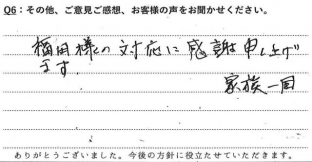 Q6：その他、ご意見ご感想、お客様の声をお聞かせください。
福田様の対応に感謝申し上げ
ます。
家族一同
ありがとうございました。今後の方針に役立たせていただきます。